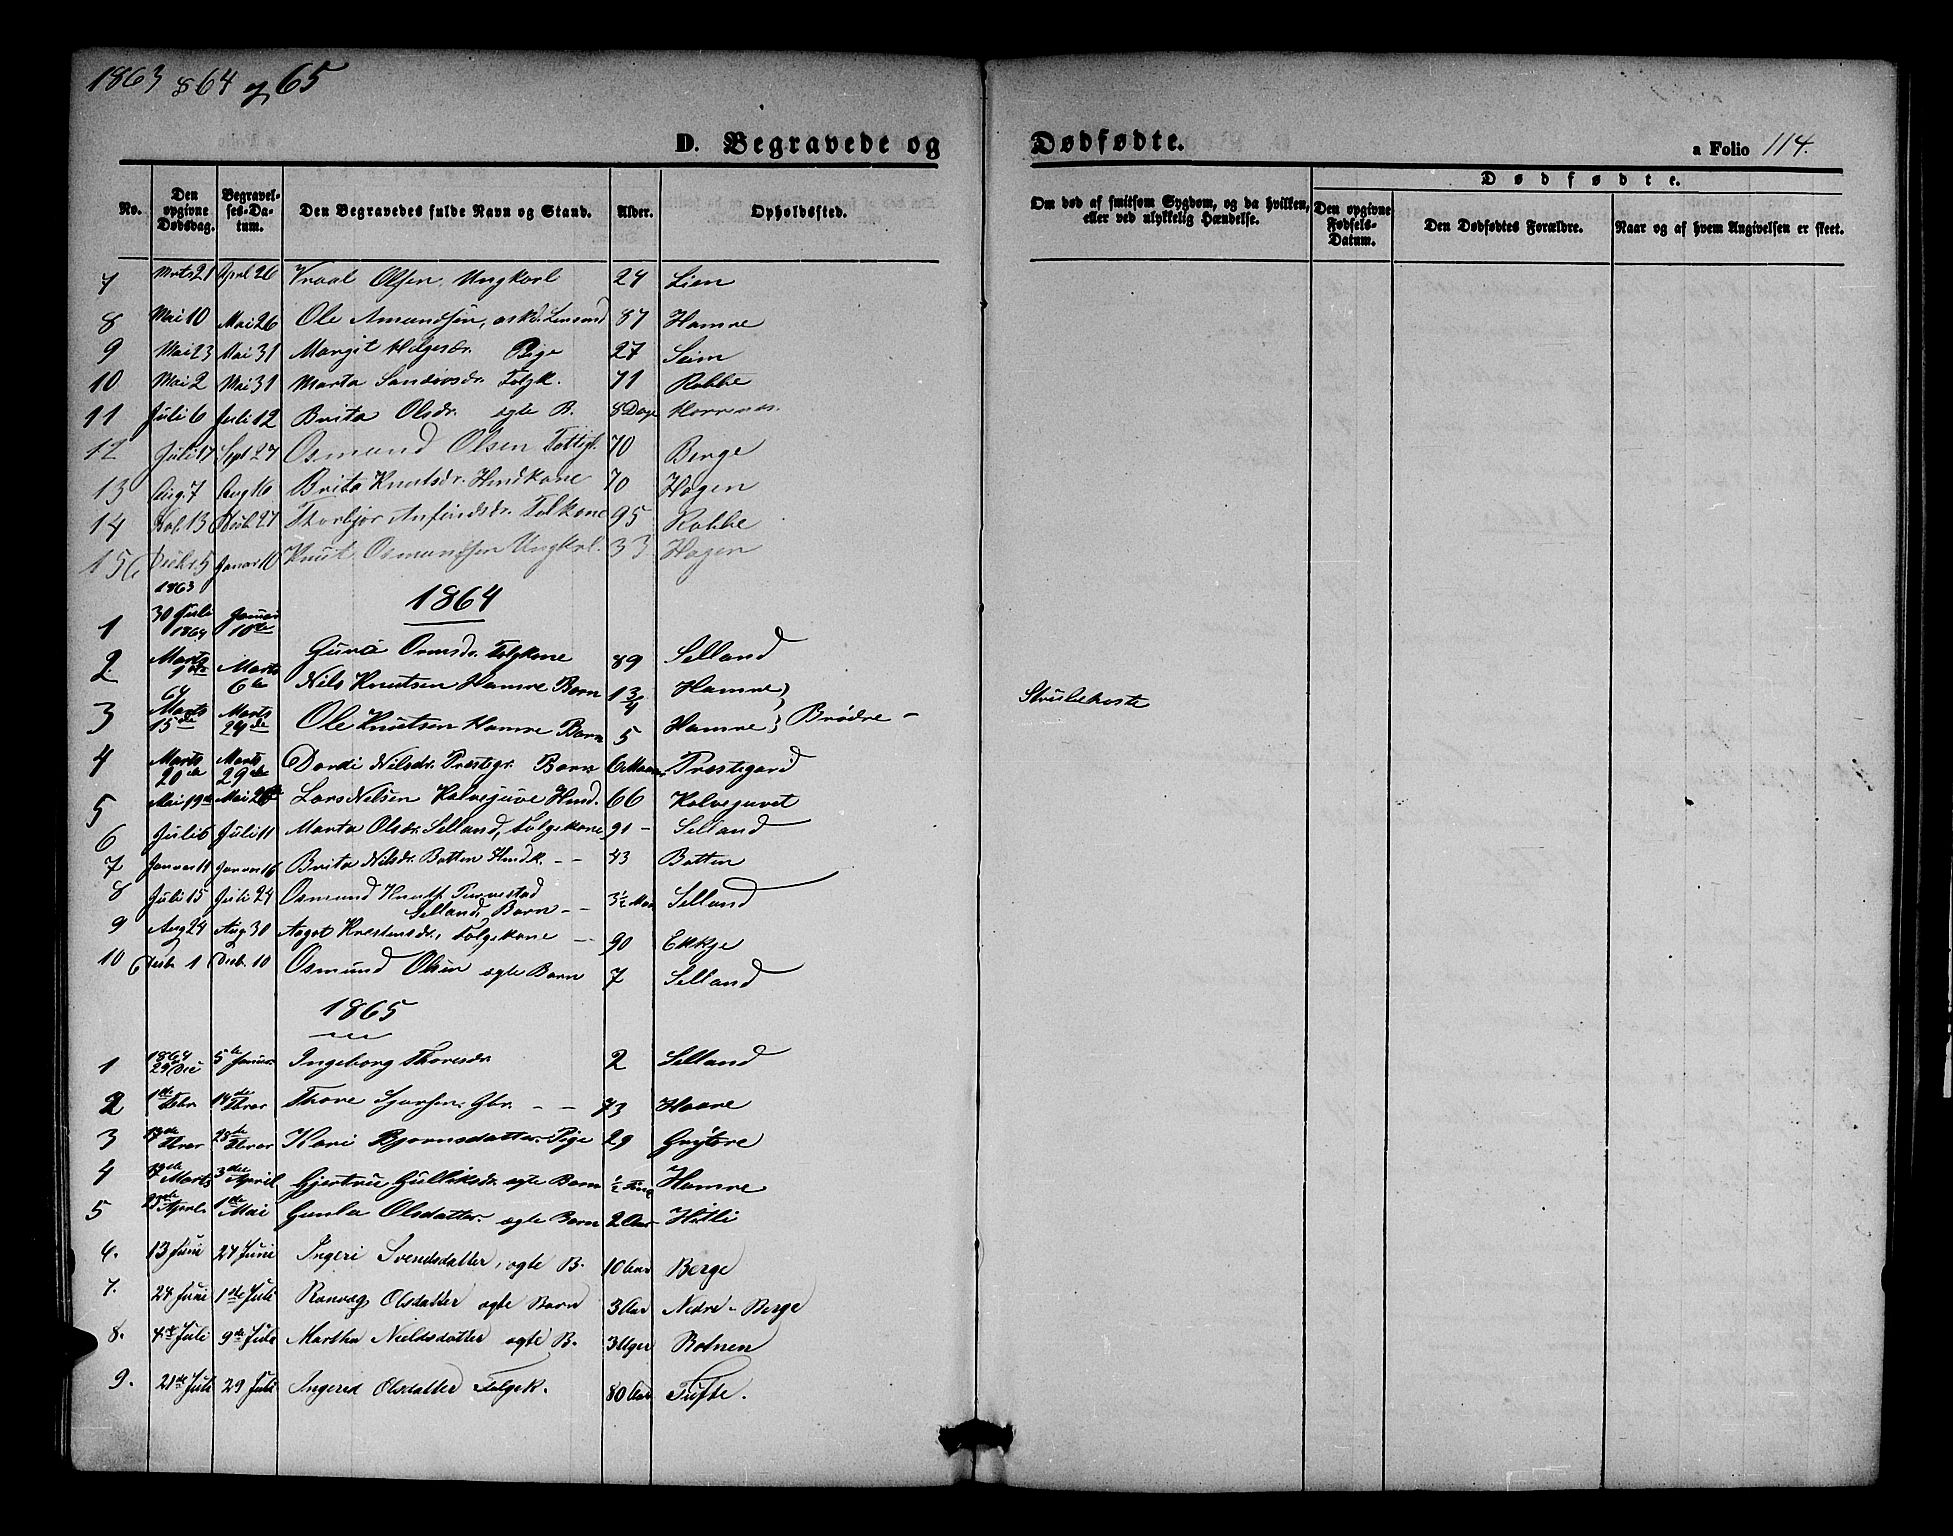 1863 864 og 65
D. Begravede og Dødfødte.
a Folio 114.
No.
Den opgivne Dødsdag.
Begravelses-Datum.
Den Begravedes fulde Navn og Stand.
Alder.
Opholdssted.
Om død af smitsom Sygdom, og da hvilken, eller ved ulykkelig Hændelse.
Dødfødte.
Den opgivne Fødsels-Datum.
Den Dødfødtes Forældre.
Naar og af hvem Angivelsen er skeet.
7 Mrts 21 April 26 Vraal Olsen, Ungkarl 24 Lien
8 Mai 10 Mai 26 Ole Amundsen, 87 Hamre
9 Mai 23 Mai 31 Margit Helgesdr. Pige 27 Seim
10 Mai 2 Mai 31 Marta Sandersdr. Folgk. 71 Rabbe
11 Juli 6 Juli 12 Brita Olsdr. ægte B. 8 Dage
12 Juli 17 Sept 27 Osmund Olsen Fattigl. 70 Berge
13 Aug. 7 Aug 16 Brita Knutsdr. Huuskone 70 Hagen
14 13 27 Thorbjor Anfindsdr. Folkone 95 Rabbe
15 Decbr. 5 Januar 10 Knut Osmundsen Ungkrl. 33 Hagen
1864
1 1863 30 Januar 10de Guro Ormsdr. Folgkone 89 Selland
2 1864 Marts Marts 6te Nils Knutsen Hamre Barn 1 3/4 Hamre } Brødre -
3 64 Marts 15de Marts 29de Ole Knutsen Hamre Barn 5 Hamre } Struбehoste
4 Marts 20de Marts 29de Dordi Nilsdr. Prestegr. Barn 6 Maan. Prestegard
5 Mai 19de Mai 26de Lars Nilsen Kalvejuve 66 Kalvejuvet
6 Juli 6 Juli 11 Marta Olsdr. Selland, Folgekone 91 - Selland
7 Januar 11 Januar 16 Brita Nilsdr. Botten Huusk. - - 43 Botten
8 Juli 15 Juli 24 Osmund Knuts.
Selland, Barn - - 3½ Maa Selland
9 Aug 24 Aug 30 Aagot Krestensdr. Folgekone - 90 Ekkje
10 Decb. 1 Decb. 10 Osmund Olsen ægte Barn 7 Selland
1865
1 1864 29 Dec 5te Januar Ingeborg Thoresdr. 2 Selland
2 1ste Febr. 14de Febrar Thore Gbr. - - 73 Haare
3 13de Febrar 28de Febrar Kari Bjornsdatter Pige 29 Grytøre
4 17de Marts 3die April Gjertrue Gulliksdr. ægte Barn ½ Hamre
5 25de April 1ste Mai Gunla Olsdatter. ægte Barn 2 Aar Hetli
6. 13 Juni 27 Juni Ingeri Svendsdatter, ægte B. 10 Aar Berge
7. 24 Juni 1ste Juli Ranvøg Olsdatter ægte Barn 3 Aar Nedre-Berge
8. 4de Juli 9de Juli Martha Nielsdatter ægte B. 3 Uger Botnen
9. 21de Juli 29 Juli Ingerid Olsdatter Folgek. 80 Aar Tufte.